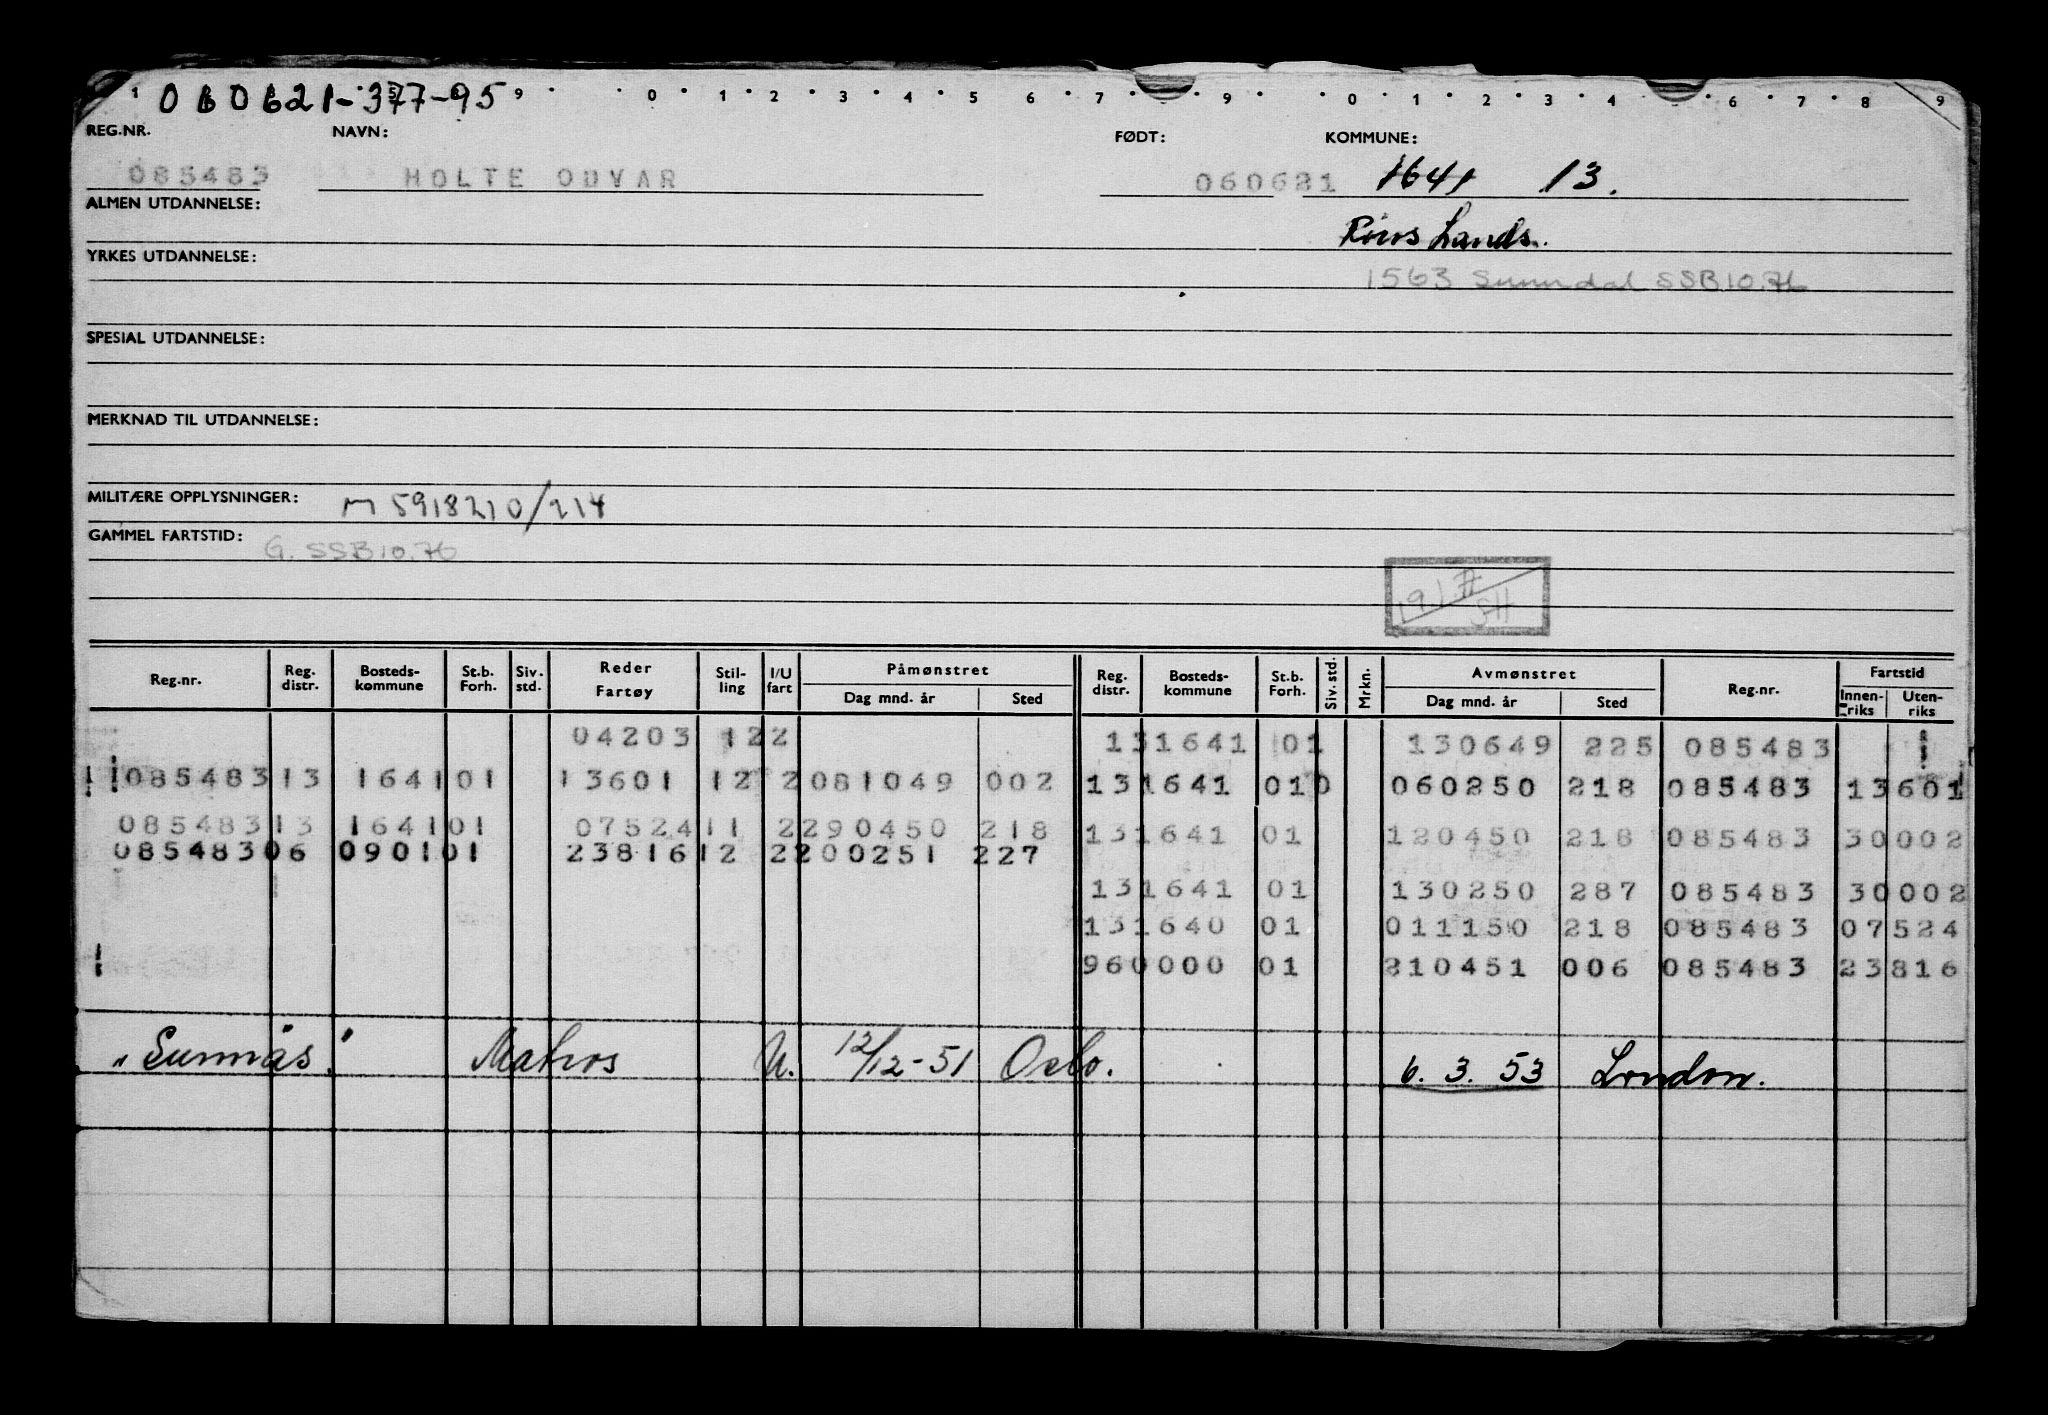 060621-377-95
1 9 0 1 2 3 4 5 6 7 9 0 1 2 3 4 6 7 8 9
REG.NR. NAVN: FØDT: KOMMUNE:
085483 HOLTE ODVAR 060621 1641 13.
ALMEN UTDANNELSE:
Röros Lands.
YRKES UTDANNELSE:
1563 Sunndal SSB10.76
SPESIAL UTDANNELSE:
MERKNAD TIL UTDANNELSE:
MILITÆRE OPPLYSNINGER: M 5918210/214
GAMMEL FARTSTID: G. SSB10.76
Reg.nr. Reg. distr. Bosteds- kommune St.b. Forh. Siv. std. Reder Fartøy Stil- ling I/U fart Påmønstret Dag mnd. år Sted Reg. distr. Bosteds- kommune St.b. Forh. Siv. std. Mrkn. Avmønstret Dag mnd. år Sted Reg.nr. Fartstid Innen- riks Uten- riks
04203 122 131641 01 130649 225 085483
085483 13 1641 01 13601 12 2 081049 002 131641 010 060250 218 085483 13601
085483 13 1641 01 07524 11 2 290450 218 131641 01 120450 218 085483 30002
085483 06 0901 01 23816 12 2 200251 227
131641 01 130250 287 085483 30002
131640 01 011150 218 085483 07524
960000 01 210451 006 085483 23816
"Sunnäs." Matros U. 12/12-51 Oslo. 6. 3. 53 London.